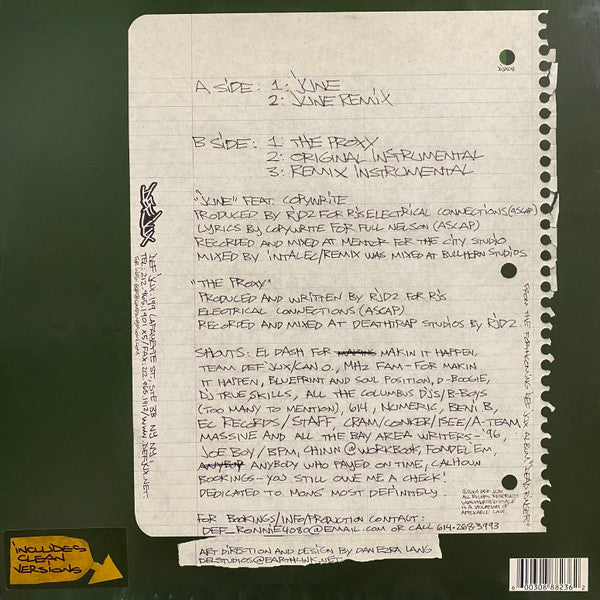 A SIDE: 1: JUNE
2: JUNE REMIX
B SIDE: 1: THE PROXY
2: ORIGINAL INSTRUMENTAL
3: REMIX INSTRUMENTAL
"JUNE" FEAT. COPYWRITE
PRODUCED BY RJD2 FOR RJ'S ELECTRICAL CONNECTIONS (ASCAP)
LYRICS BY COPYWRITE FOR FULL NELSON (ASCAP)
RECORDED AND MIXED AT MENTOR FOR THE CITY STUDIO
MIXED BY INTALEC/REMIX WAS MIXED AT BULLHERN STUDIOS
"THE PROXY"
PRODUCED AND WRITTEN BY RJD2 FOR RJ'S
ELECTRICAL CONNECTIONS (ASCAP)
RECORDED AND MIXED AT DEATHTRAP STUDIOS BY RJD2.
SHOUTS: EL DASH FOR MAKING MAKIN IT HAPPEN,
TEAM DEF JUX/CAN O., MHZ FAM-FOR MAKIN
IT HAPPEN, BLUEPRINT AND SOUL POSITION, D-BOOGIE,
DJ TRUE SKILLS, ALL THE COLUMBUS DJ'S/B-BOYS
(TOO MANY TO MENTION), 614, NUMERIC, BENI B,
EC RECORDS/STAFF, CRAM/CONKER/ISEE/A-TEAM
MASSIVE AND ALL THE BAY AREA WRITERS-'96,
JOE BOY/BFM, CHINN@WORKBOOK, FONDEL EM,
ANYBOP ANYBODY WHO PAYED ON TIME, CALHOUN
BOOKINGS-YOU STILL OWE ME A CHECK!
DEDICATED TO MOMS MOST DEFINITELY.
FOR BOOKINGS/INFO/PRODUCTION CONTACT:
DEF_RONNIE4080@EMAIL.COM OR CALL 614-268-3993
ART DIRECTION AND DESIGN BY DAN EZRA LANG
DELSTUDIOS@EARTHLINK.NET
FROM THE FORTHCOMING DEF JUX ALBUM "DEAD RINGER"
DEF JUX
DEF JUX 199 LAFAYETTE ST. STE 3B NY NY
ALL RIGHTS RESERVED
IS A VIOLATION OF
APPLICABLE LAW.
INCLUDES
CLEAN
VERSIONS
6 00308 88236 2